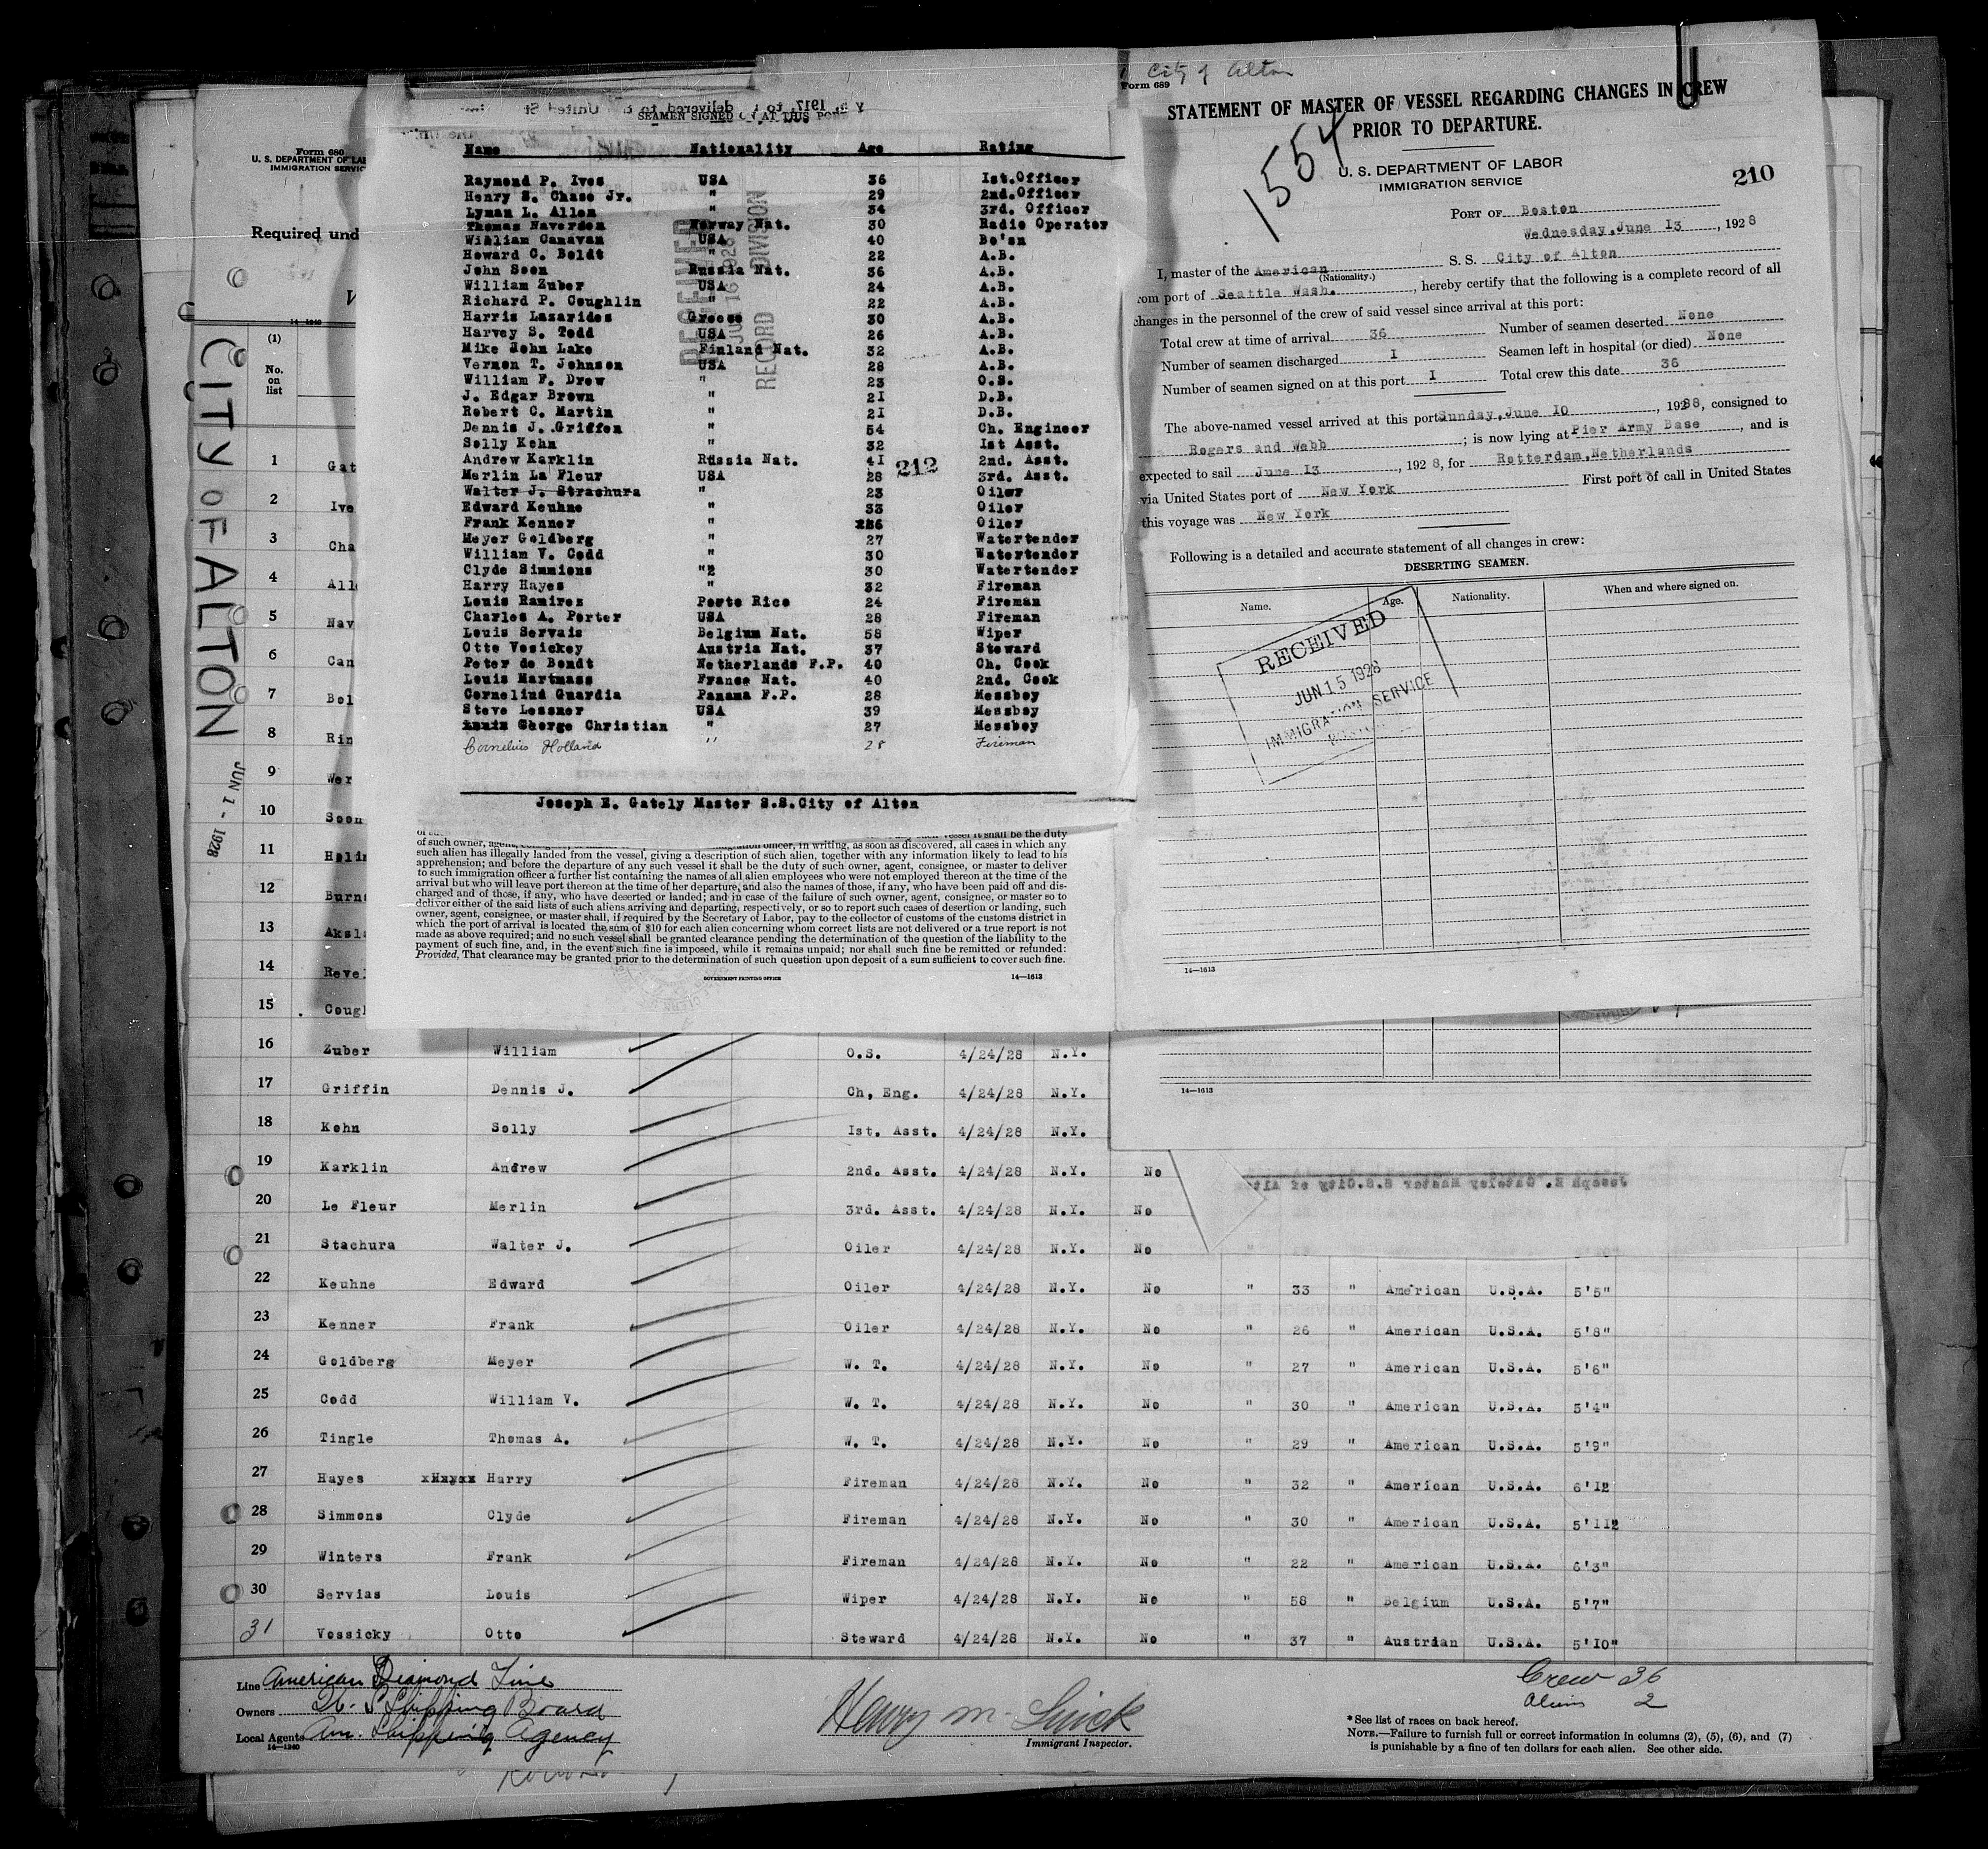 Form 680
U. S. DEPARTMENT OF LAB
IMMIGRATION SERVIC
Required und
14—1240
(1)
No.
on
list
CITY OF ALTON
JUN 1 - 1928
1 Gat
2 Ive
3 Cha
4 All
5 Nav
6 Can
7 Bol
8 Rin
9 Wer
10 Soon
11 Holin
12 Burn
13 Aksl
14 Reve
15 Cougl
SEAMEN SIGNED ON AT THIS PORT
Name Nationality Age Rating
Raymond P. Ives USA 36 Ist.Officer
Henry S. Chase Jr. " 29 2nd.Officer
Lyman L. Allen " 34 3rd. Officer
Thomas Naverden Norway Nat. 30 Radio Operator
William Canavan USA 40 Bo'sn
Howard C. Boldt " 22 A.B.
John Soon Russia Nat. 36 A.B.
William Zuber USA 24 A.B.
Richard P. Coughlin " 22 A.B.
Harris Lazarides Greece 30 A.B.
Harvey S. Todd USA 26 A.B.
Mike John Lake Finland Nat. 32 A.B.
Vernon T. Johnson USA 28 A.B.
William F. Drew " 23 O.S.
J. Edgar Brown " 21 D.B.
Robert C. Martin " 21 D.B.
Dennis J. Griffen " 54 Ch. Engineer
Solly Kohn " 32 Ist Asst.
Andrew Karklin Russia Nat. 41 2nd. Asst.
Merlin La Fleur USA 28 3rd. Asst.
Walter J. Strachura " 23 Oiler
Edward Keuhne " 33 Oiler
Frank Kenner " 26 Oiler
Meyer Goldberg " 27 Watertender
William V. Codd " 30 Watertender
Clyde Simmions " 30 Watertender
Harry Hayes " 32 Fireman
Louis Ramirez Porto Rico 24 Fireman
Charles A. Porter USA 28 Fireman
Louis Servais Belgium Nat. 58 Wiper
Otto Vesickey Austria Nat. 37 Steward
Peter de Bondt Netherlands F.P. 40 Ch. Cook
Louis Hartmass France Nat. 40 2nd. Cook
Cornelius Guardia Panama F.P. 28 Messboy
Steve Lessner USA 39 Messboy
George Christian " 27 Messboy
Cornelius Holland " 28 Fireman
RECEIVED
JUN 16 1928
RECORD DIVISION
212
Joseph E. Gately Master S.S.City of Alton
vessel it shall be the duty
of such owner, officer, in writing, as soon as discovered, all cases in which any
such alien has illegally landed from the vessel, giving a description of such alien, together with any information likely to lead to his
apprehension; and before the departure of any such vessel it shall be the duty of such owner, agent, consignee, or master to deliver
to such immigration officer a further list containing the names of all alien employees who were not employed thereon at the time of the
arrival but who will leave port thereon at the time of her departure, and also the names of those, if any, who have been paid off and dis-
charged and of those, if any, who have deserted or landed; and in case of the failure of such owner, agent, consignee, or master so to
deliver either of the said lists of such aliens arriving and departing, respectively, or so to report such cases of desertion or landing, such
owner, agent, consignee, or master shall, if required by the Secretary of Labor, pay to the collector of customs of the customs district in
which the port of arrival is located the sum of $10 for each alien concerning whom correct lists are not delivered or a true report is not
made as above required; and no such vessel shall be granted clearance pending the determination of the question of the liability to the
payment of such fine, and, in the event such fine is imposed, while it remains unpaid; nor shall such fine be remitted or refunded:
Provided, That clearance may be granted prior to the determination of such question upon deposit of a sum sufficient to cover such fine.
GOVERNMENT PRINTING OFFICE 14—1613
City of Alton
Form 689
STATEMENT OF MASTER OF VESSEL REGARDING CHANGES IN CREW
PRIOR TO DEPARTURE.
1554
U. S. DEPARTMENT OF LABOR
IMMIGRATION SERVICE
210
PORT OF Boston
Wednesday,June 13, 1928
I, master of the American S. S. City of Alton
(Nationality.)
rom port of Seattle Wash., hereby certify that the following is a complete record of all
changes in the personnel of the crew of said vessel since arrival at this port:
Total crew at time of arrival 36 Number of seamen deserted None
Number of seamen discharged I Seamen left in hospital (or died) None
Number of seamen signed on at this port I Total crew this date 36
The above-named vessel arrived at this port Sunday,June 10, 1928, consigned to
Rogers and Webb; is now lying at Pier Army Base, and is
expected to sail June 13, 1928, for Rotterdam,Netherlands
via United States port of New York First port of call in United States
this voyage was New York
Following is a detailed and accurate statement of all changes in crew:
DESERTING SEAMEN.
Name. Age. Nationality. When and where signed on.
RECEIVED
JUN 15 1928
IMMIGRATION SERVICE
14—1613
14—1613
16 Zuber William O.S. 4/24/28 N.Y.
17 Griffin Dennis J. Ch, Eng. 4/24/28 N.Y.
18 Kohn Solly Ist. Asst. 4/24/28 N.Y.
19 Karklin Andrew 2nd. Asst. 4/24/28 N.Y. No
20 Le Fleur Merlin 3rd. Asst. 4/24/28 N.Y. No
21 Stachura Walter J. Oiler 4/24/28 N.Y. No
22 Keuhne Edward Oiler 4/24/28 N.Y. No " 33 " American U.S.A. 5'5"
23 Kenner Frank Oiler 4/24/28 N.Y. No " 26 " American U.S.A. 5'8"
24 Goldberg Meyer W. T. 4/24/28 N.Y. No " 27 " American U.S.A. 5'6"
25 Codd William V. W. T. 4/24/28 N.Y. No " 30 " American U.S.A. 5'4"
26 Tingle Thomas A. W. T. 4/24/28 N.Y. No " 29 " American U.S.A. 5'9"
27 Hayes Harry Fireman 4/24/28 N.Y. No " 32 " American U.S.A. 6'12
28 Simmons Clyde Fireman 4/24/28 N.Y. No " 30 " American U.S.A. 5'112
29 Winters Frank Fireman 4/24/28 N.Y. No " 22 " American U.S.A. 6'3"
30 Servias Louis Wiper 4/24/28 N.Y. No " 58 " Belgium U.S.A. 5'7"
31 Vossicky Otto Steward 4/24/28 N.Y. No " 37 " Austrian U.S.A. 5'10"
Line American Diamond Line
Owners U. S Shipping Board
Local Agents Am. Shipping Agency
14—1240
Henry M.
Immigrant Inspector.
Crew 36
Aliens 2
*See list of races on back hereof.
NOTE.—Failure to furnish full or correct information in columns (2), (5), (6), and (7)
is punishable by a fine of ten dollars for each alien. See other side.